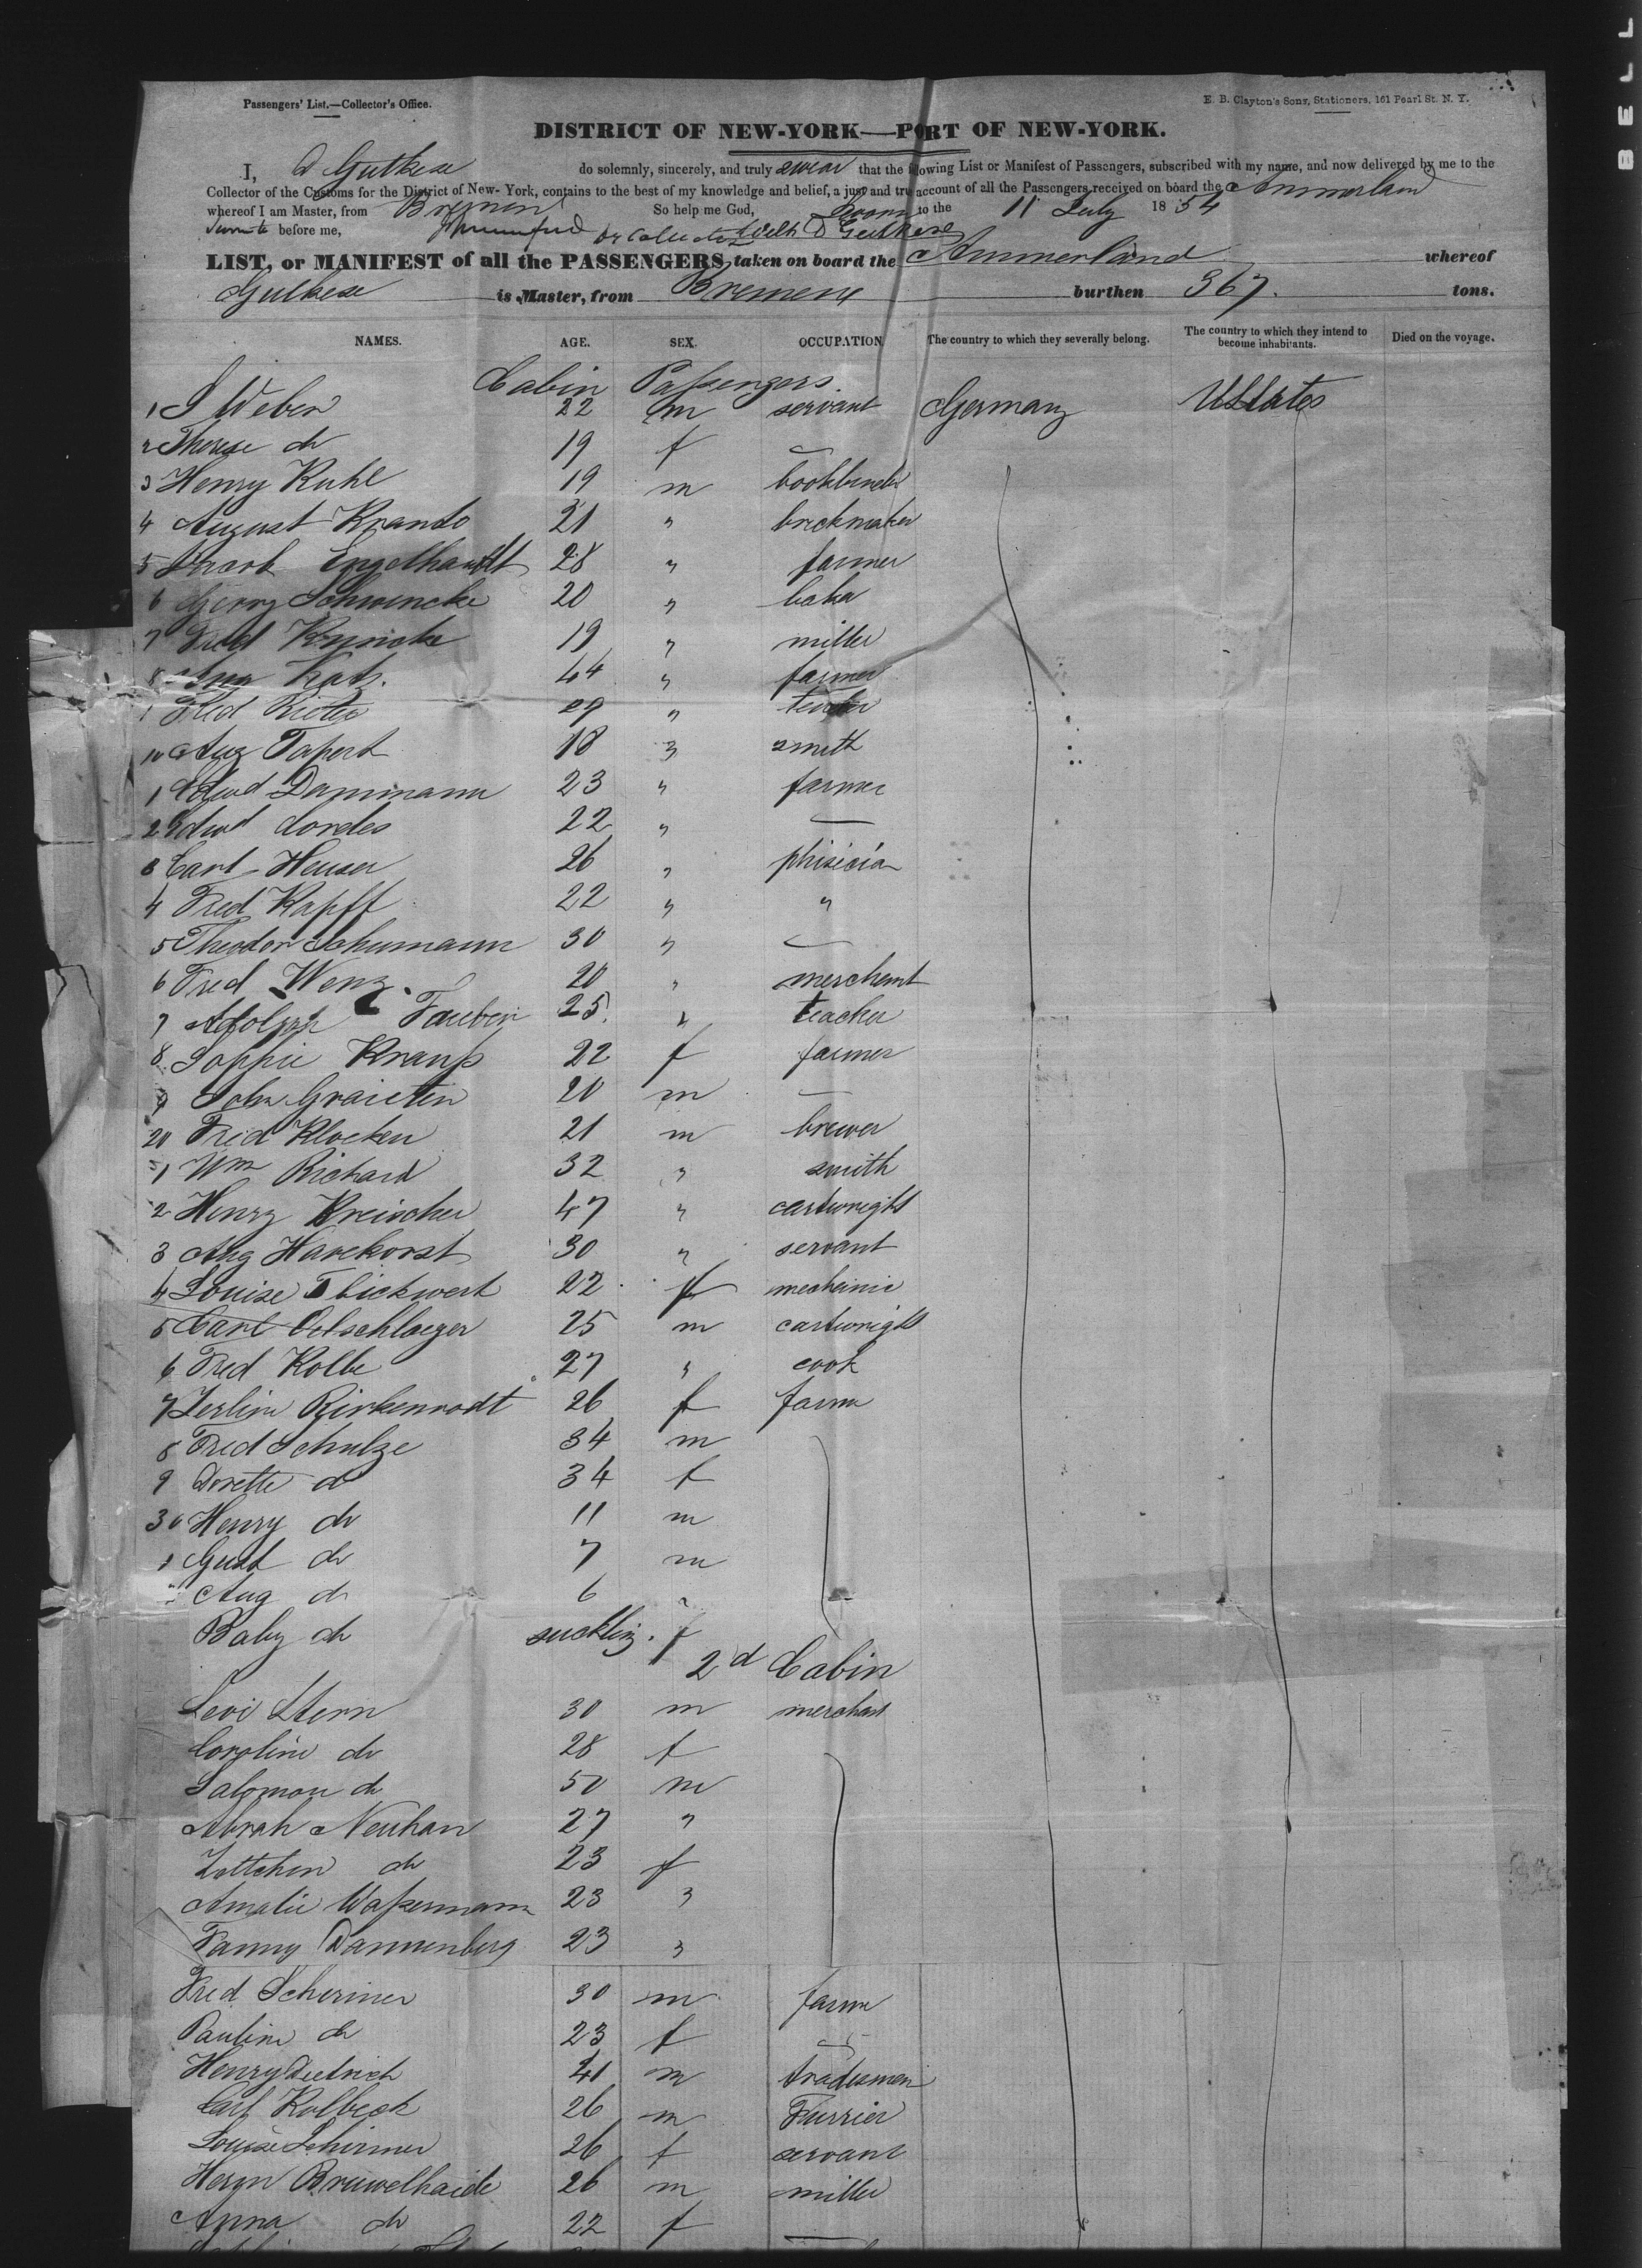 BELL
Passengers' List.—Collector's Office.
E. B. Clayton's Sons, Stationers, 161 Pearl St. N. Y.
DISTRICT OF NEW-YORK—PORT OF NEW-YORK.
I, D Gutkese do solemnly, sincerely, and truly swear that the following List or Manifest of Passengers, subscribed with my name, and now delivered by me to the
Collector of the Customs for the District of New-York, contains to the best of my knowledge and belief, a just and true account of all the Passengers received on board the Ammerland
whereof I am Master, from Bremen So help me God, Sworn to the 11 July 1854
before me, D Gutkese
LIST, or MANIFEST of all the PASSENGERS taken on board the Ammerland whereof
Gutkese is Master, from Bremen burthen 367. tons.
NAMES. AGE. SEX. OCCUPATION The country to which they severally belong. The country to which they intend to become inhabitants. Died on the voyage.
Cabin Passengers.
1 Weber 22 m servant Germany UStates
2 Therese do 19 f —
3 Henry Kuhl 19 m bookbinder
4 August 21 " brickmaker
5 Engelhardt 28 " farmer
6 Schwencke 20 " baker
7 Fred 19 " miller
8 Katz. 44 " farmer
Fred 29 "
10 Aug Tapert 18 " smith
1 Edwd Dammann 23 " farmer
2 Edwd Cordes 22 " —
3 Carl Heuser 26 " phisicia
4 Fred Kapff 22 " "
5 Theodor Schumann 30 " —
6 Fred Wenz. 20 " merchant
7 Adolph Tauber 25 " teacher
8 Sophie Krauss 22 f farmer
9 John 20 m —
20 Fred Klocken 21 m brewer
1 Wm Richard 32 " smith
2 Henry Kreischer 47 " cartwright
3 Aug Havekorst 30 " servant
4 Louise 22 f mechanic
5 Carl Oelschlaeger 25 m cartwright
6 Fred Kolbe 27 " cook
7 Birkenrodt 26 f farm
8 Fred Schulze 34 m
9 Dorette do 34 f
30 Henry do 11 m
1 Gust do 7 m
Aug do 6 "
Baby do suckling. f
2d Cabin
Levi Stern 30 m merchant
Caroline do 28 f
Salomon do 50 m
Abrah Neuhan 27 "
Lottchen do 23 f
Amalie Wassermann 23 "
Fanny Dannenberg 23 "
Fred Schirmer 30 m farm
Pauline do 23 f
Henry Dietrich 41 m tradesmen
Carl Kolbeck 26 m Furrier
Louise Schirmer 26 f servant
Hermn Bruwelhaide 26 m miller
Anna do 22 f —